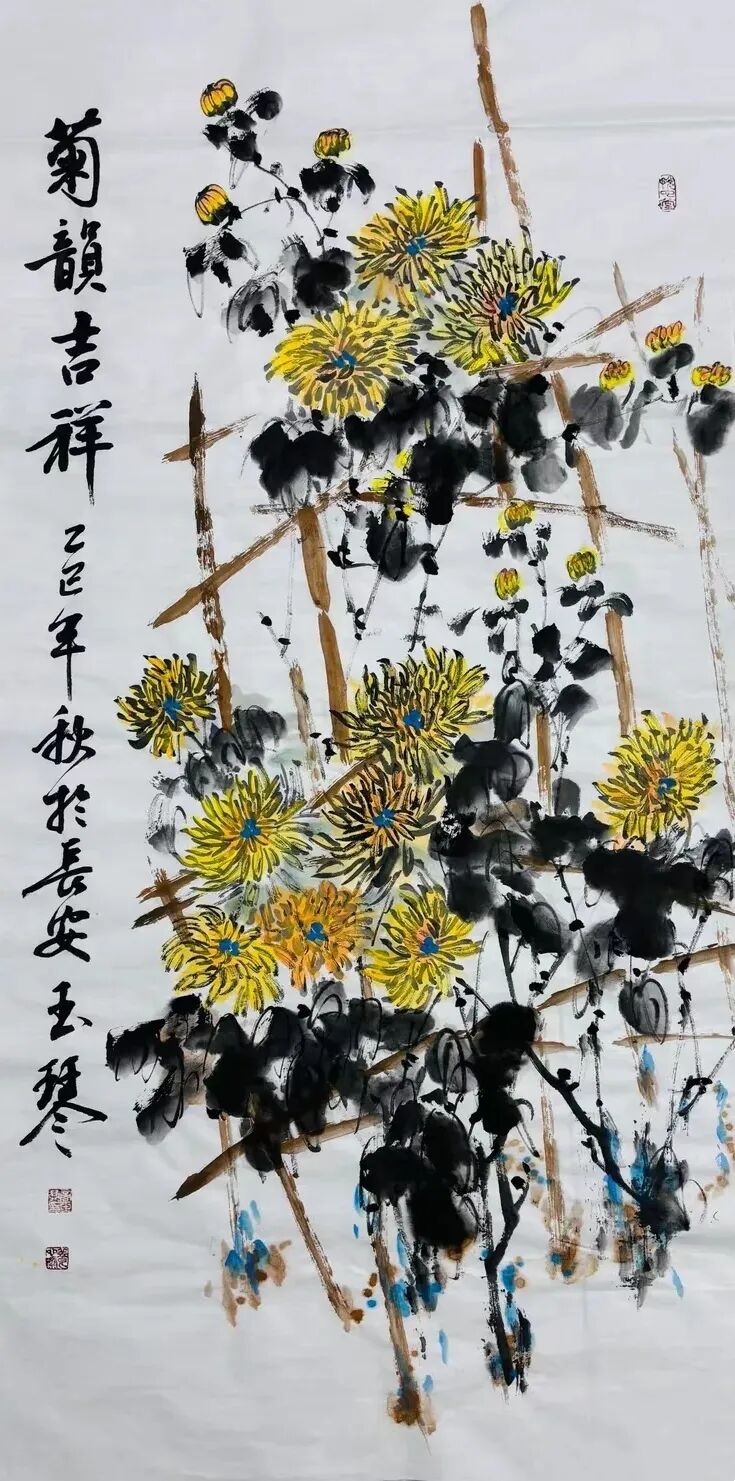 菊韻吉祥
乙巳年秋於長安玉琴